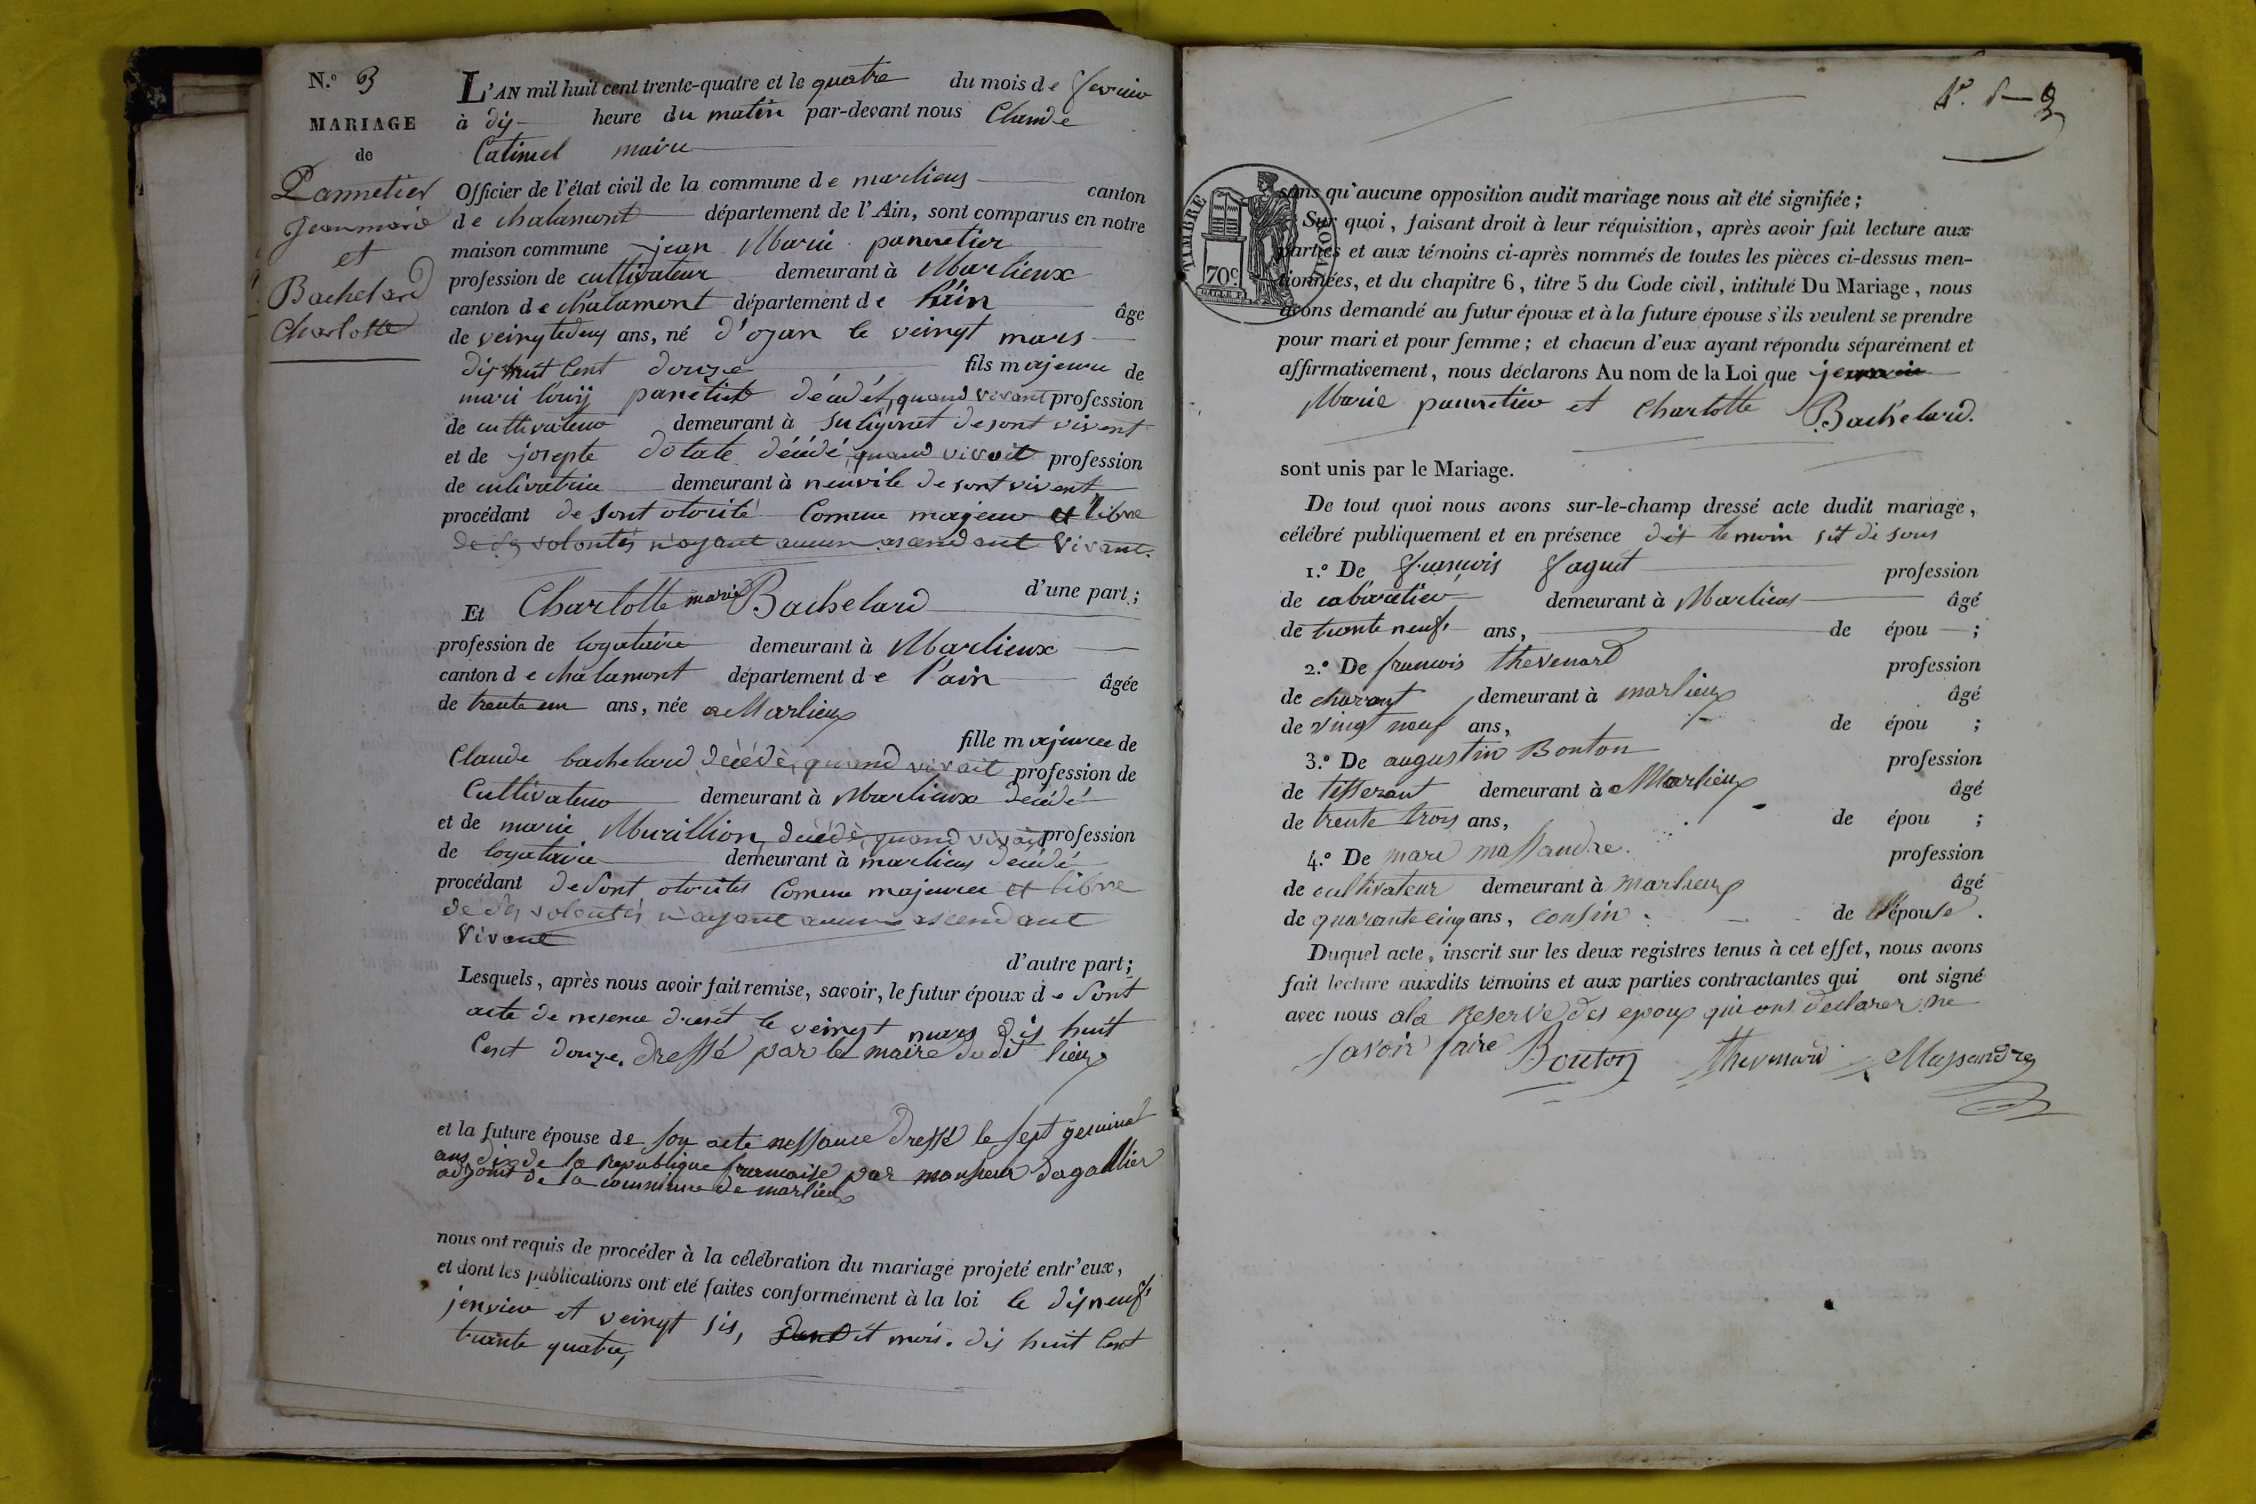 N.º 3
MARIAGE
de
Pannetier
Jeanmarie
et
Bachelard
Charlotte
L'AN mil huit cent trente-quatre et le quatre du mois de fevrier
à dis heure du matin par-devant nous Claude
Catimel maire
Officier de l'état civil de la commune de marlieux canton
de chalamont département de l'Ain, sont comparus en notre
maison commune jean Marie pannetier
profession de cultivateur demeurant à Marlieux
canton de chalamont département de l'ain âge
de veingtedeux ans, né d'ojan le veingt mars
dixhuit Cent douze fils majeure de
mari louij panetier décédét, quand vivant profession
de cultivateur demeurant à Suligniet de sont vivent
et de josepte dotale décédé, quand vivoit profession
de culivatrice demeurant à neuvile de sont vivent
procédant de sont otorité Comme majeur et libre
de ses volontés n'ayant aucun ascendant vivant.
d'une part;
Et Charlotte marie Bachelard
profession de logataire demeurant à Marlieux
canton de chalamont département de l'ain âgée
de trente un ans, née a Marlieux
fille majeure de
Claude bachelard décédé, quand vivait profession de
Cultivateur demeurant à Marlieux décédé
et de marie Murillion, décédé, quand vivait profession
de logataire demeurant à marlieux décédé
procédant de Sont otorités Comme majeure et libre
de ses volontés n'ayant aucun ascendant
vivant
d'autre part;
Lesquels, après nous avoir fait remise, savoir, le futur époux de Sont
acte de nesence dresét le veingt mars dis huit
Cent douze. dressé par le maire du dit lieux
et la future épouse de son acte nessance dressé le sept
ans dix de la Republique francaise par monsieur dagallier
adjoint de la commune de marlieux
nous ont requis de procéder à la célébration du mariage projeté entr'eux,
et dont les publications ont été faites conformément à la loi le disneuf
jenvier et veingt sis, dudit mois. dis huit Cent
trante quatre,
TIMBRE ROYAL
70 c.
sans qu'aucune opposition audit mariage nous ait été signifiée;
Sur quoi, faisant droit à leur réquisition, après avoir fait lecture aux
parties et aux témoins ci-après nommés de toutes les pièces ci-dessus men-
tionnées, et du chapitre 6, titre 5 du Code civil, intitulé Du Mariage, nous
avons demandé au futur époux et à la future épouse s'ils veulent se prendre
pour mari et pour femme; et chacun d'eux ayant répondu séparément et
affirmativement, nous déclarons Au nom de la Loi que
Marie pannetier et Charlotte Bachelard.
sont unis par le Mariage.
De tout quoi nous avons sur-le-champ dressé acte dudit mariage,
célébré publiquement et en présence dit temoin sit di sous
1.º De francois faguet profession
de cabaretier demeurant à Marlieux âgé
de trante neuf ans, de épou ;
2.º De francois thevenard profession
de charont demeurant à marlieux âgé
de vingt neuf ans, de épou ;
3.º De augustin Bouton profession
de tisserant demeurant à Marlieux âgé
de trente trois ans, de épou ;
4.º De marc massandre. profession
de cultivateur demeurant à marlieux âgé
de quarante cinq ans, cousin de l'épouse.
Duquel acte, inscrit sur les deux registres tenus à cet effet, nous avons
fait lecture auxdits témoins et aux parties contractantes qui ont signé
avec nous a la Reserve des epoux qui ons declarer ne
savoir faire Bouton thevenard Massandre